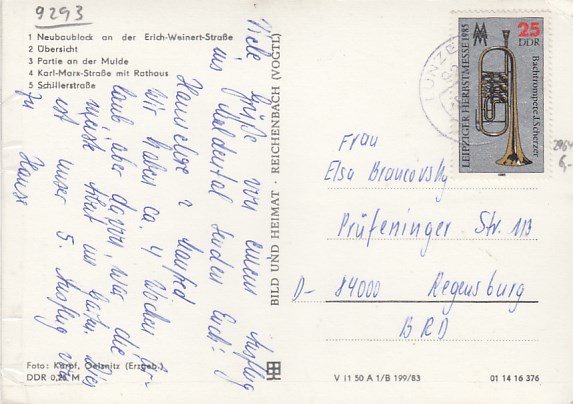 9293
1 Neubaublock an der Erich-Weinert-Straße
2 Übersicht
3 Partie an der Mulde
4 Karl-Marx-Straße mit Rathaus
5 Schillerstraße
Viele Grüße von einem Ausflug
ins Muldental senden Euch!
Hannelore u Manfred
Wir haben ca. 4 Wochen Ur-
laub aber davon war die
meiste Arbeit im Garten. Dies
ist unser 5. Ausflug von
zu Hause
Foto: Karpf, Oelsnitz (Erzgeb.)
DDR 0,25 M
BILD UND HEIMAT · REICHENBACH (VOGTL)
LEIPZIGER HERBSTMESSE 1985
25
DDR
Bachtrompete J. Scherzer
1985
Frau
Elsa Brancovsky
Prüfeninger Str. 113
D- 84000 Regensburg
BRD
V 11 50 A 1/B 199/83
01 14 16 376